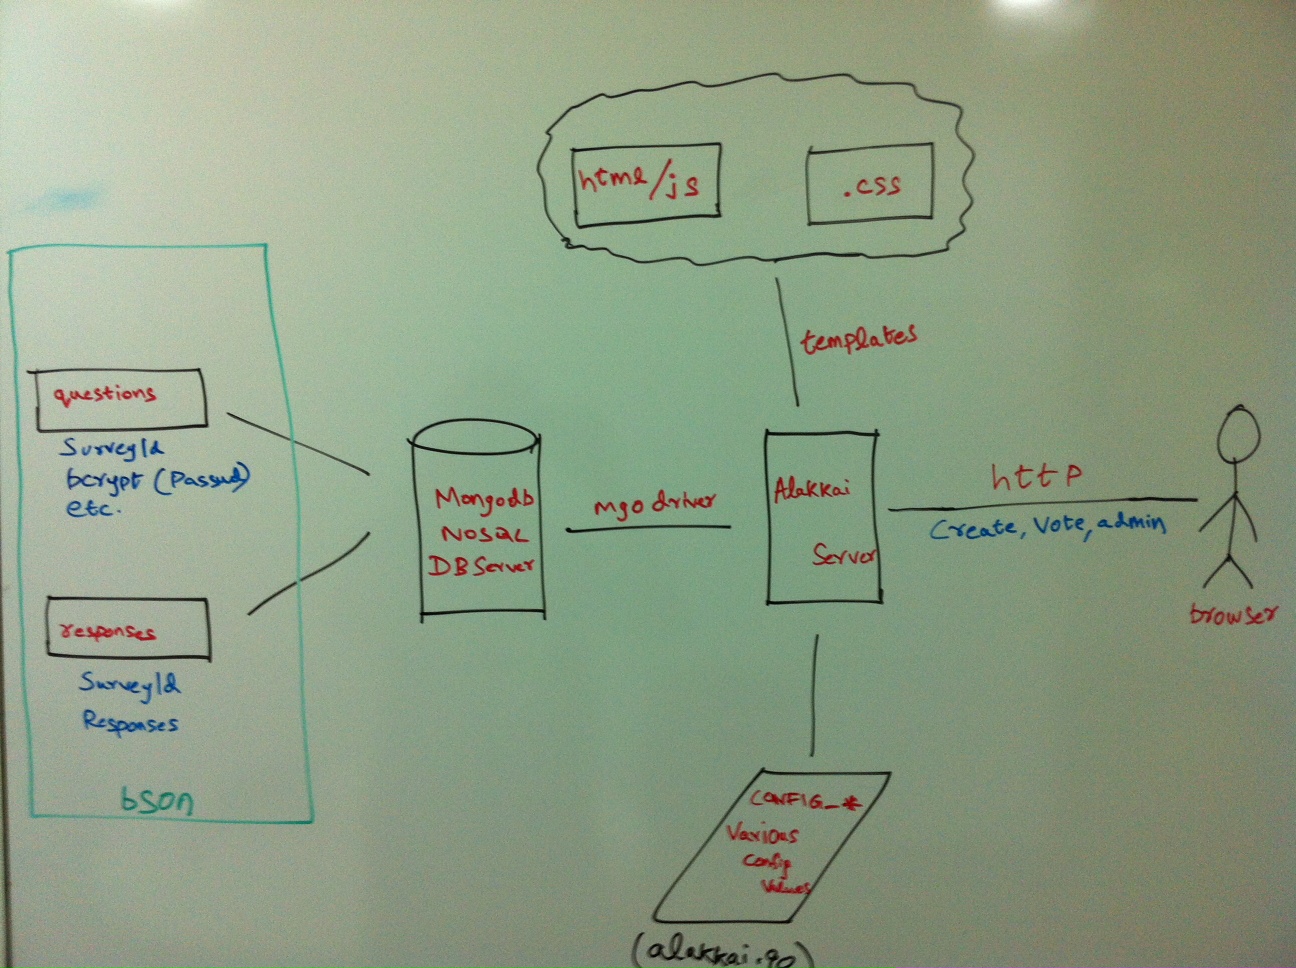 html/js
.css
templates
questions
SurveyId
bcrypt (Passwd)
etc.
responses
SurveyId
Responses
bson
Mongodb
NOSQL
DB Server
mgo driver
Alakkai
Server
http
Create, Vote, admin
browser
CONFIG_*
Various
Config
Values
(alakkai.go)